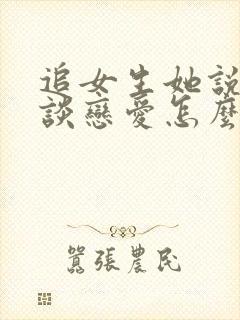 追女生她說
談戀愛怎麼
囂張農民